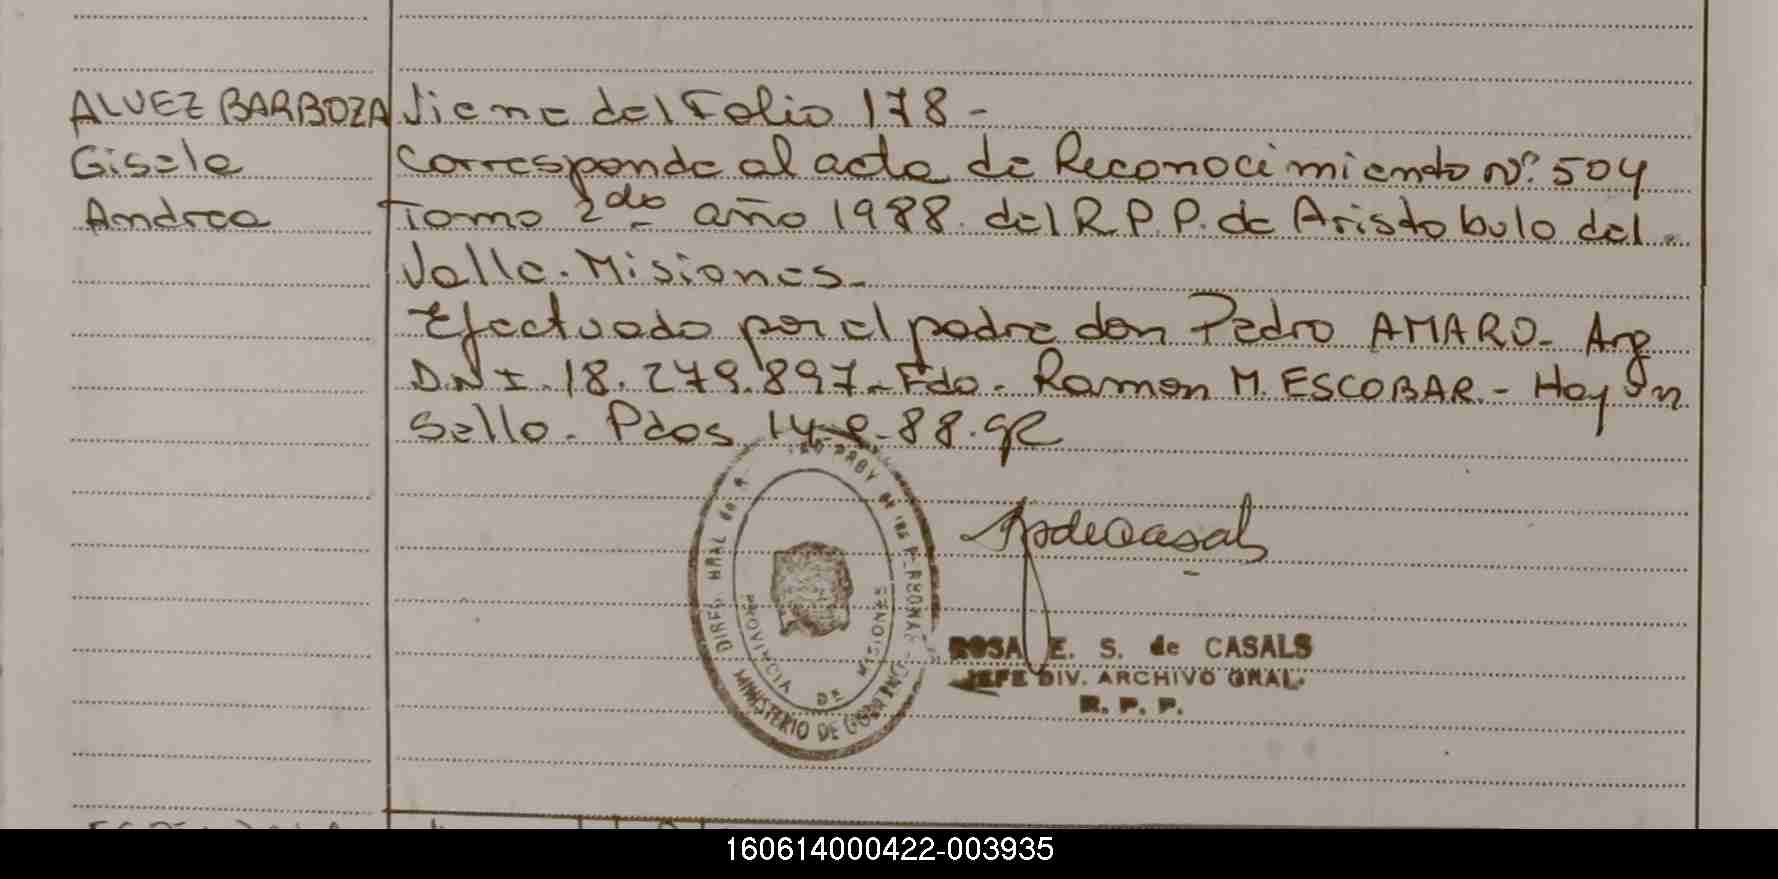 ALVEZ BARBOZA Viene del Folio 178 -
Gisele Corresponde al acta de Reconocimiento Nº. 504
Andrea Tomo 2do año 1988. del R.P.P. de Aristobulo del
Valle. Misiones.-
Efectuado por el padre don Pedro AMARO- Arg
D.N I. 18.279.897.- Fdo. Ramon M. ESCOBAR.- Hay un
Sello. Pdos
ROSA E. S. de CASALS
JEFE DIV. ARCHIVO GRAL.
R. P. P.
PROVINCIA DE MISIONES
MINISTERIO DE
160614000422-003935